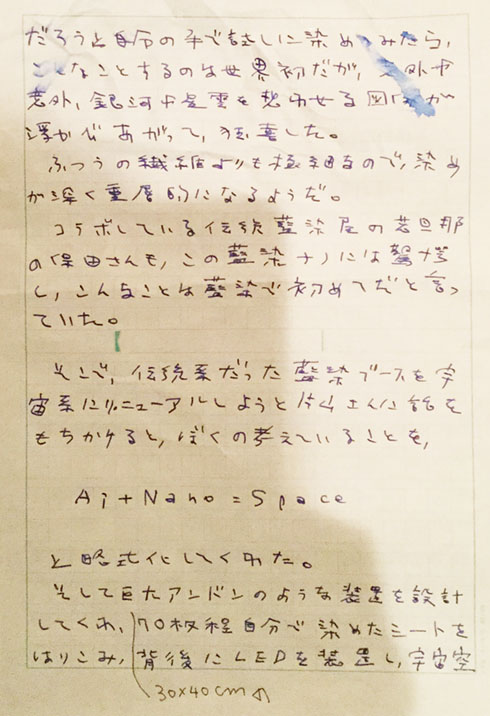 だろうと自分の手で試しに染めてみたら、
こんなことするのは世界初だが、意外や
意外、銀河や星雲を想わせる図像が
浮かびあがって、狂喜した。
ふつうの繊維よりも極細なので、染め
が深く重層的になるようだ。
コラボしている伝統藍染屋の若旦那
の保田さんも、この藍染ナノには驚嘆
し、こんなことは藍染で初めてだと言っ
ていた。
そこで、伝統系だった藍染ブースを宇
宙系にリニューアルしようと片山さんに話を
もちかけると、ぼくの考えていることを、
Ai+Nano=Space
と略式化してくれた。
そして巨大アンドンのような装置を設計
してくれ、70枚程自分で染めたシートを
はりこみ、背後にLEDを装置し、宇宙空
30×40cmの